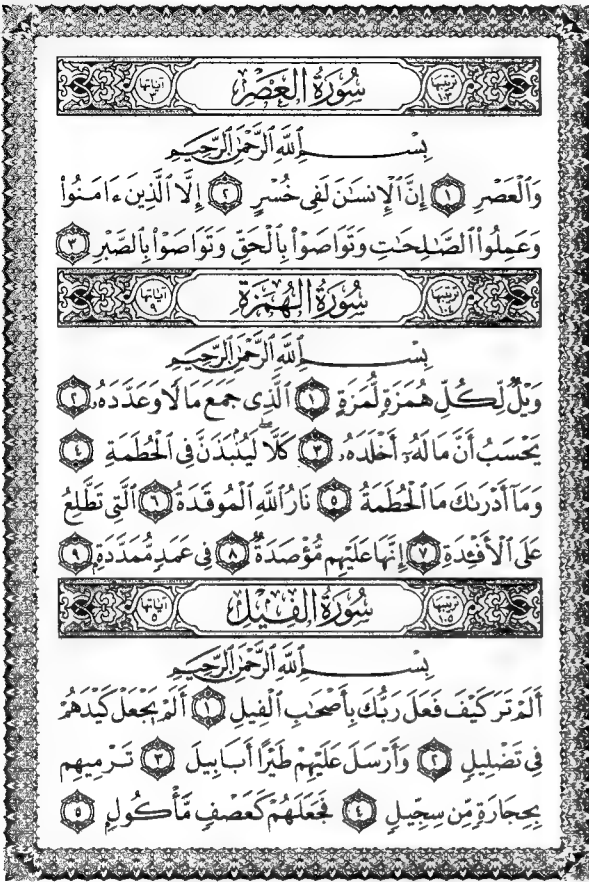 ترتيبها ١٠٣ سُورَةُ العَصْرِ آياتها ٣
بِسْمِ ٱللَّهِ ٱلرَّحْمَٰنِ ٱلرَّحِيمِ
وَٱلْعَصْرِ ١ إِنَّ ٱلْإِنسَٰنَ لَفِى خُسْرٍ ٢ إِلَّا ٱلَّذِينَ ءَامَنُوا۟
وَعَمِلُوا۟ ٱلصَّٰلِحَٰتِ وَتَوَاصَوْا۟ بِٱلْحَقِّ وَتَوَاصَوْا۟ بِٱلصَّبْرِ ٣
ترتيبها ١٠٤ سُورَةُ الهُمَزَةِ آياتها ٩
بِسْمِ ٱللَّهِ ٱلرَّحْمَٰنِ ٱلرَّحِيمِ
وَيْلٌ لِّكُلِّ هُمَزَةٍ لُّمَزَةٍ ١ ٱلَّذِى جَمَعَ مَالًا وَعَدَّدَهُۥ ٢
يَحْسَبُ أَنَّ مَالَهُۥٓ أَخْلَدَهُۥ ٣ كَلَّا لَيُنۢبَذَنَّ فِى ٱلْحُطَمَةِ ٤
وَمَآ أَدْرَىٰكَ مَا ٱلْحُطَمَةُ ٥ نَارُ ٱللَّهِ ٱلْمُوقَدَةُ ٦ ٱلَّتِى تَطَّلِعُ
عَلَى ٱلْأَفْـِٔدَةِ ٧ إِنَّهَا عَلَيْهِم مُّؤْصَدَةٌ ٨ فِى عَمَدٍ مُّمَدَّدَةٍ ٩
ترتيبها ١٠٥ سُورَةُ الفِيلِ آياتها ٥
بِسْمِ ٱللَّهِ ٱلرَّحْمَٰنِ ٱلرَّحِيمِ
أَلَمْ تَرَ كَيْفَ فَعَلَ رَبُّكَ بِأَصْحَٰبِ ٱلْفِيلِ ١ أَلَمْ يَجْعَلْ كَيْدَهُمْ
فِى تَضْلِيلٍ ٢ وَأَرْسَلَ عَلَيْهِمْ طَيْرًا أَبَابِيلَ ٣ تَرْمِيهِم
بِحِجَارَةٍ مِّن سِجِّيلٍ ٤ فَجَعَلَهُمْ كَعَصْفٍ مَّأْكُولٍۭ ٥